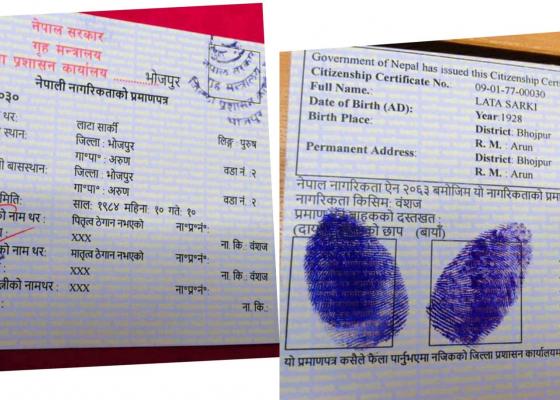 नेपाल सरकार
गृह मन्त्रालय
प्रशासन कार्यालय ............ भोजपुर
नेपाल सरकार
गृह मन्त्रालय
जिल्ला प्रशासन
भोजपुर
नेपाली नागरिकताको प्रमाणपत्र
०३०
थर: लाटा सार्की लिङ्ग : पुरुष
स्थान: जिल्ला : भोजपुर
गा॰पा॰ : अरुण वडा नं. : २
बासस्थान: जिल्ला : भोजपुर
गा॰पा॰ : अरुण वडा नं. : २
मिति: साल: १९८४ महिना: १० गते: १०
को नाम थर: पितृत्व ठेगान नभएको ना॰प्र॰नं॰:
XXX ना. कि : वंशज
को नाम थर: मातृत्व ठेगान नभएको ना॰प्र॰नं॰:
XXX ना. कि : वंशज
को नामथर: XXX ना॰प्र॰नं॰:
ना. कि.:
Government of Nepal has issued this Citizenship Certi
Citizenship Certificate No. 09-01-77-00030
Full Name.: LATA SARKI
Date of Birth (AD): Year:1928
Birth Place: District: Bhojpur
R. M. : Arun
Permanent Address: District: Bhojpur
R. M. : Arun
नेपाल नागरिकता ऐन २०६३ बमोजिम यो नागरिकताको प्रमा
नागरिकता किसिम: वंशज
दस्तखत :
छाप (बायाँ)
यो प्रमाणपत्र कसैले फेला पार्नुभएमा नजिकको जिल्ला प्रशासन कार्यालयमा